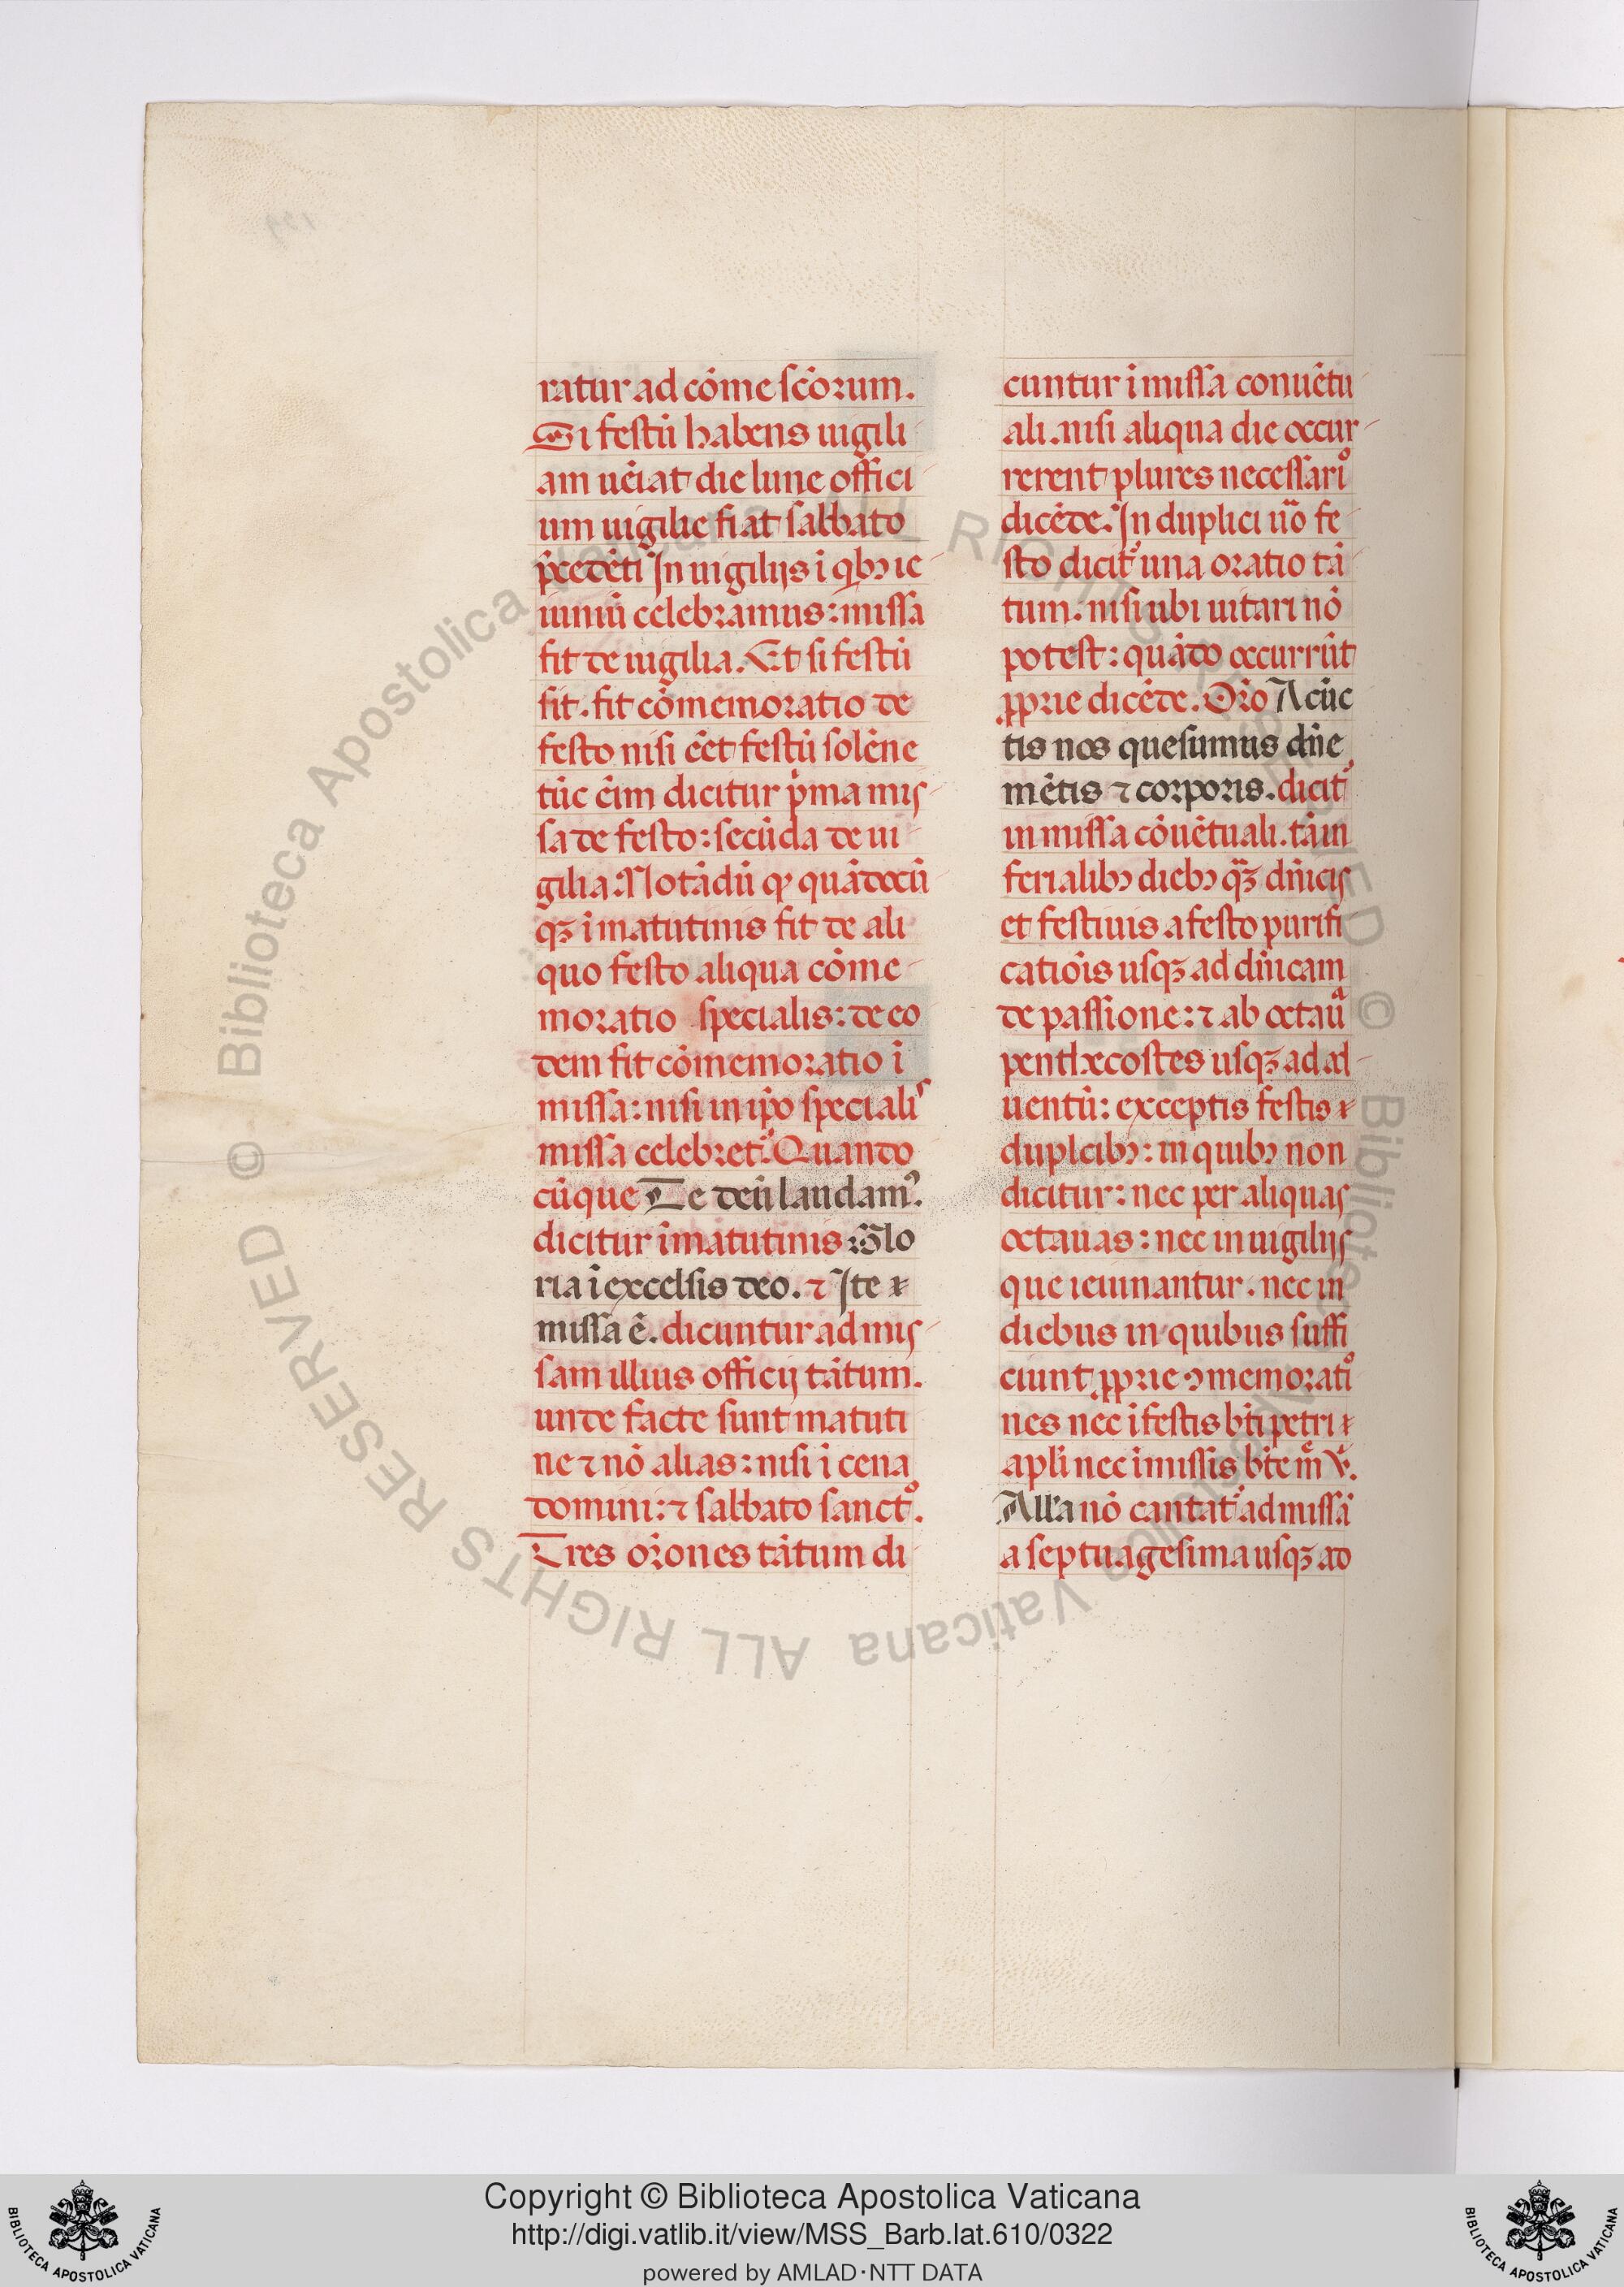 ratur ad cōme scōrum.
Si festū habens uigili
am uēiat die lune offici
um uigilie fiat sabbato
p̄cedēti In uigilijs ī qbꝫ ie
iuniū celebramus: missa
fit de uigilia. Et si festū
sit. fit cōmemoratio de
festo nisi eēt festū solēne
tūc eīm dicitur pͥma mis
sa de festo: secūda de ui
gilia. Notādū ꝙ quādocū
qꝫ ī matutinis fit de ali
quo festo aliqua cōme
moratio specialis: de eo
dem fit cōmemoratio ī
missa: nisi in ip̄o specialiˢ
missa celebret᷑. Quando
cūque Te deū laudamꝰ.
dicitur īmatutinis: Glo
ria ī excelsis deo. ⁊ Ite
missa ē. dicuntur ad mis
sam illius officij tātum.
unde facte sunt matuti
ne ⁊ nō alias: nisi ī cena
domini: ⁊ sabbato sanctᵒ.
Tres orōnes tātum di
cuntur ī missa conuētu
ali. nisi aliqua die occur
rerent plures necessariᵒ
dicēde. In duplici uᵒ fe
sto dicit᷑ una oratio tā
tum. nisi ubi uitari nō
potest: quādo occurrūt
ꝓprie dicēde. Orō A cūc
tis nos quesumus dn̄e
mētis ⁊ corporis. dicit᷑
in missa cōuētuali. tam̄
ferialibꝫ diebꝫ qᵃꝫ dn̄icis
et festiuis a festo purifi
catiōis usqꝫ ad dn̄icam
de passione: ⁊ ab octauᵃ
penthecostes usqꝫ ad ad
uentū: exceptis festis
duplcibꝫ: in quibꝫ non
dicitur: nec per aliquas
octauas: nec in uigilijs
que ieiunantur. nec in
diebus in quibus suffi
ciunt ꝓprie ꝯmemoratiᵒ
nes nec ī festis bt̄i petri
apl̄i nec īmissis bt̄e m̄ v̄.
All̄a nō cantat᷑ ad missā
a septuagesima usqꝫ ad
Copyright © Biblioteca Apostolica Vaticana
http://digi.vatlib.it/view/MSS_Barb.lat.610/0322
powered by AMLAD·NTT DATA
© Biblioteca Apostolica Vaticana ALL RIGHTS RESERVED © Biblioteca Apostolica Vaticana ALL RIGHTS RESERVED
BIBLIOTECA APOSTOLICA VATICANA
BIBLIOTECA APOSTOLICA VATICANA